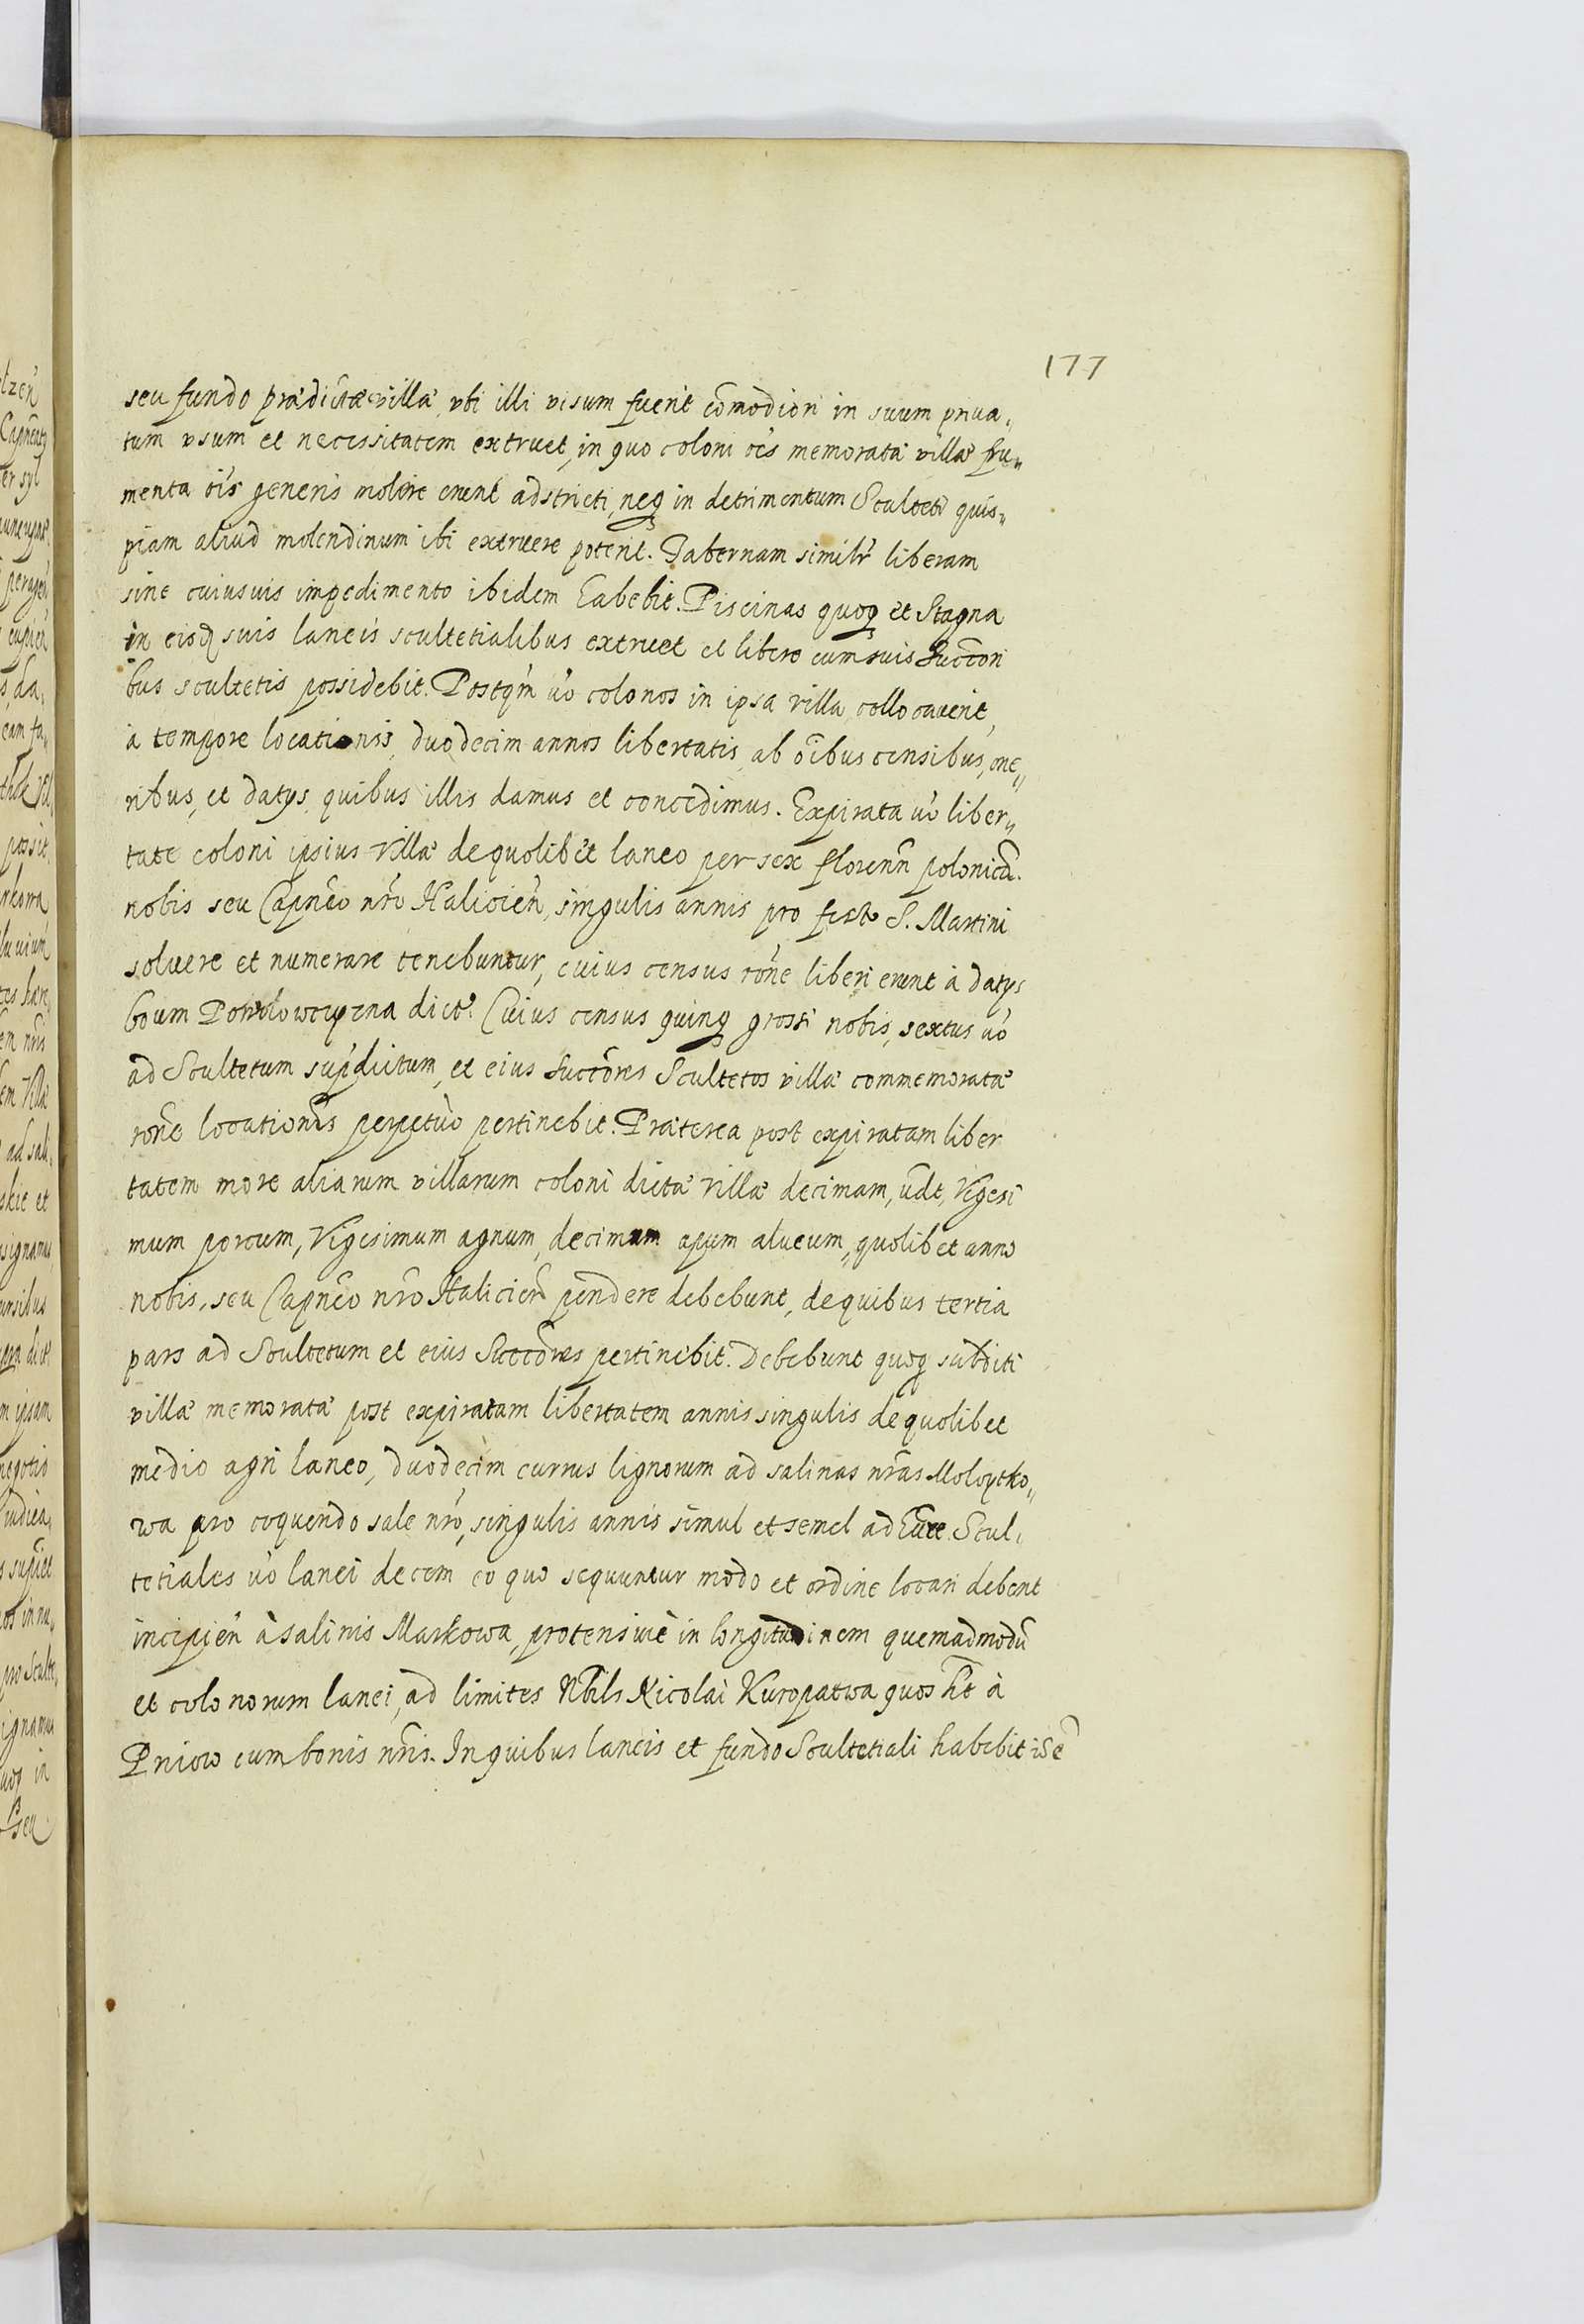 177
seu fundo prædictæ villæ, vbi illi visum fuerit cōmodiori in suum priua„
tum vsum et necessitatem extruet, in quo coloni oēs memoratæ villæ fru„
menta oīs generis molere erunt adstricti, neq̧ in detrimentum Sculteti quis„
piam aliud molendinum ibi extruere poterit. Tabernam similr̃ liberam
sine cuiusuis impedimento ibidem habebit. Piscinas quoq̧ et Stagna
in eisd suis laneis scultetialibus extruet et libere cum suis Succōri
bus scultetis possidebit. Postq̃m vo colonos in ipsa villa collocauerit,
à tempore locationis, duodecim annos libertatis, ab oībus censibus, one„
ribus, et datys quibus illis damus et concedimus. Expirata vo liber„
tate coloni ipsius villæ de quolibet laneo per sex floren̄ polonicā.
nobis seu Capnēo nr̄o Halicień, singulis annis pro festo S. Martini
soluere et numerare tenebuntur, cuius census rōne liberi erunt à datys
boum dict. Cuius census quinq̧ grossi nobis, sextus vo
ad Scultetum sup̃dictum, et eius Succōres Scultetos villæ commemoratæ
rōne locationis perpetuò pertinebit. Præterea post expiratam liber
tatem more aliarum villarum coloni dictæ villæ decimam, vdt, Vigesi
mum porcum, Vigesimum agnum, decimum apum alueum, quolibet anno
nobis, seu Capnēo nr̄o Halicień pendere debebunt, de quibus tertia
pars ad Scultetum et eius Succōres pertinebit. Debebunt quoq̧ subditi
villæ memoratæ post expiratam libertatem annis singulis de quolibet
medio agri laneo, duodecim currus lignorum ad salinas nr̄as Molotko„
wa pro coquendo sale nr̄o, singulis annis simul et semel aduere. Scul„
tetiales vo lanei decem eo quo sequuntur modo et ordine locari debent
incipień à salinis Markowa, protensiuè in longitudinem quemadmodū
et colonorum lanei, ad limites Nbils Nicolai Kuropatwa quos h̄t à
Pniow cum bonis nr̄is. In quibus laneis et fundo Scultetiali habebit